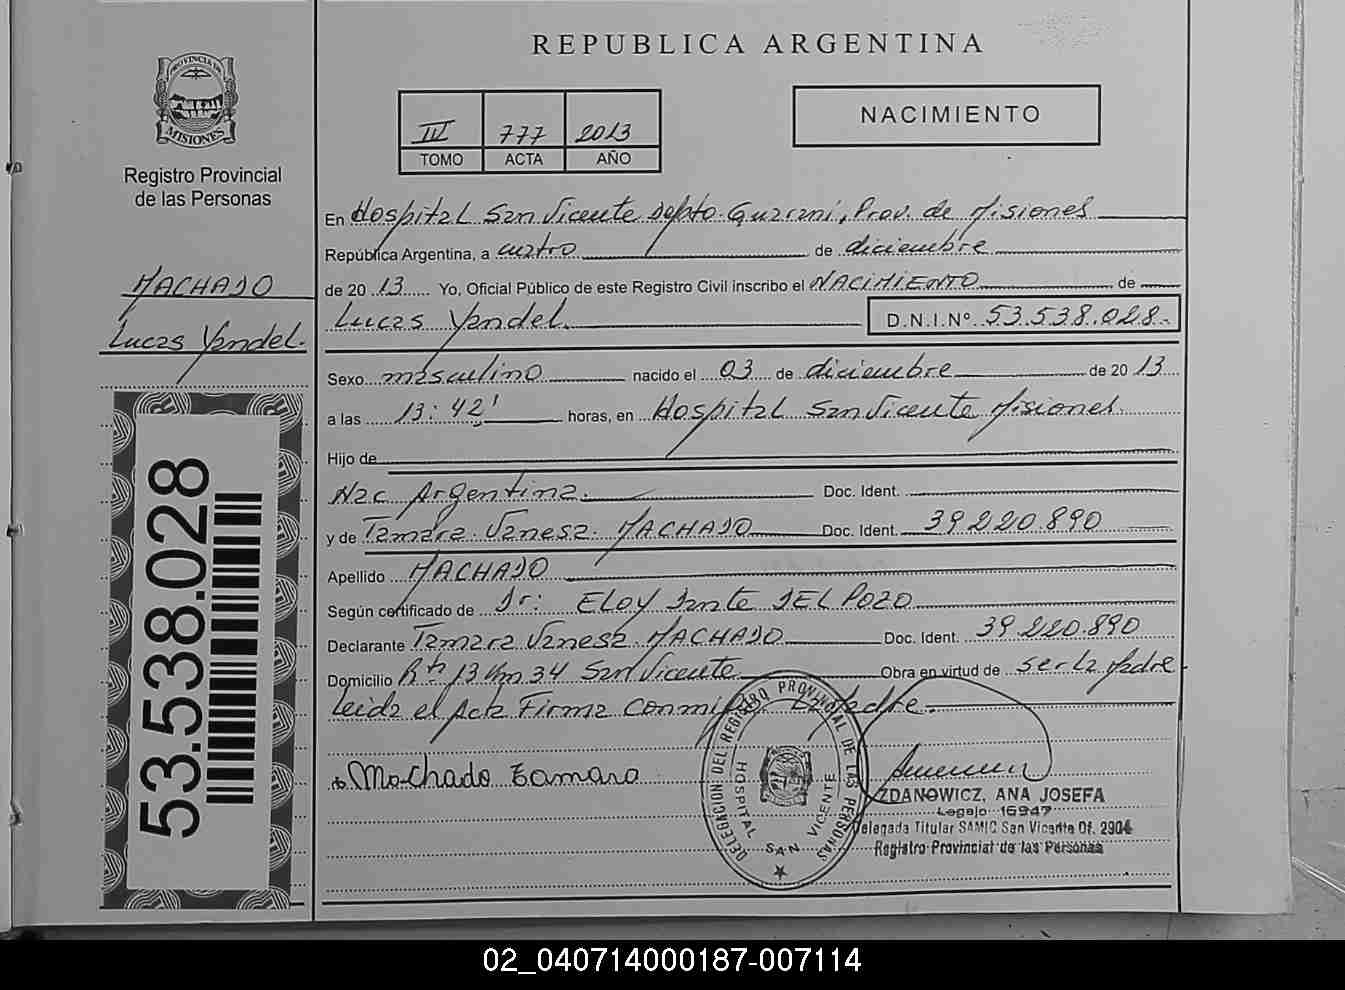 REPUBLICA ARGENTINA
PROVINCIA DE
MISIONES
Registro Provincial
de las Personas
III 777 2013
TOMO ACTA AÑO
NACIMIENTO
En Hospital San Vicente Depto. Guaraní, Prov. de Misiones
República Argentina, a cuatro de diciembre
de 20 13 Yo, Oficial Público de este Registro Civil inscribo el NACIMIENTO de
Lucas Yandel. D.N.I.Nº 53.538.028.-
Sexo masculino nacido el 03 de diciembre de 20 13
a las 13:42' horas, en Hospital San Vicente Misiones.
Hijo de
Nac Argentina. Doc. Ident.
y de Tamara Vanesa MACHADO Doc. Ident. 39 220.890
Apellido MACHADO
Según certificado de Dr: ELOY Dante DEL POZO
Declarante Tamara Vanesa MACHADO Doc. Ident. 39 220.890
Domicilio Rta 13 Km 34 San Vicente Obra en virtud de ser La Madre
Leida el Acta Firma conmigo La Madre.
Machado Tamara
MACHADO
Lucas Yandel.
53.538.028
DELEGACION DEL REGISTRO PROVINCIAL DE LAS PERSONAS
HOSPITAL SAN VICENTE
ZDANOWICZ, ANA JOSEFA
Legajo 16947
Delegada Titular SAMIC San Vicente Of. 2904
Registro Provincial de las Personas
02_040714000187-007114